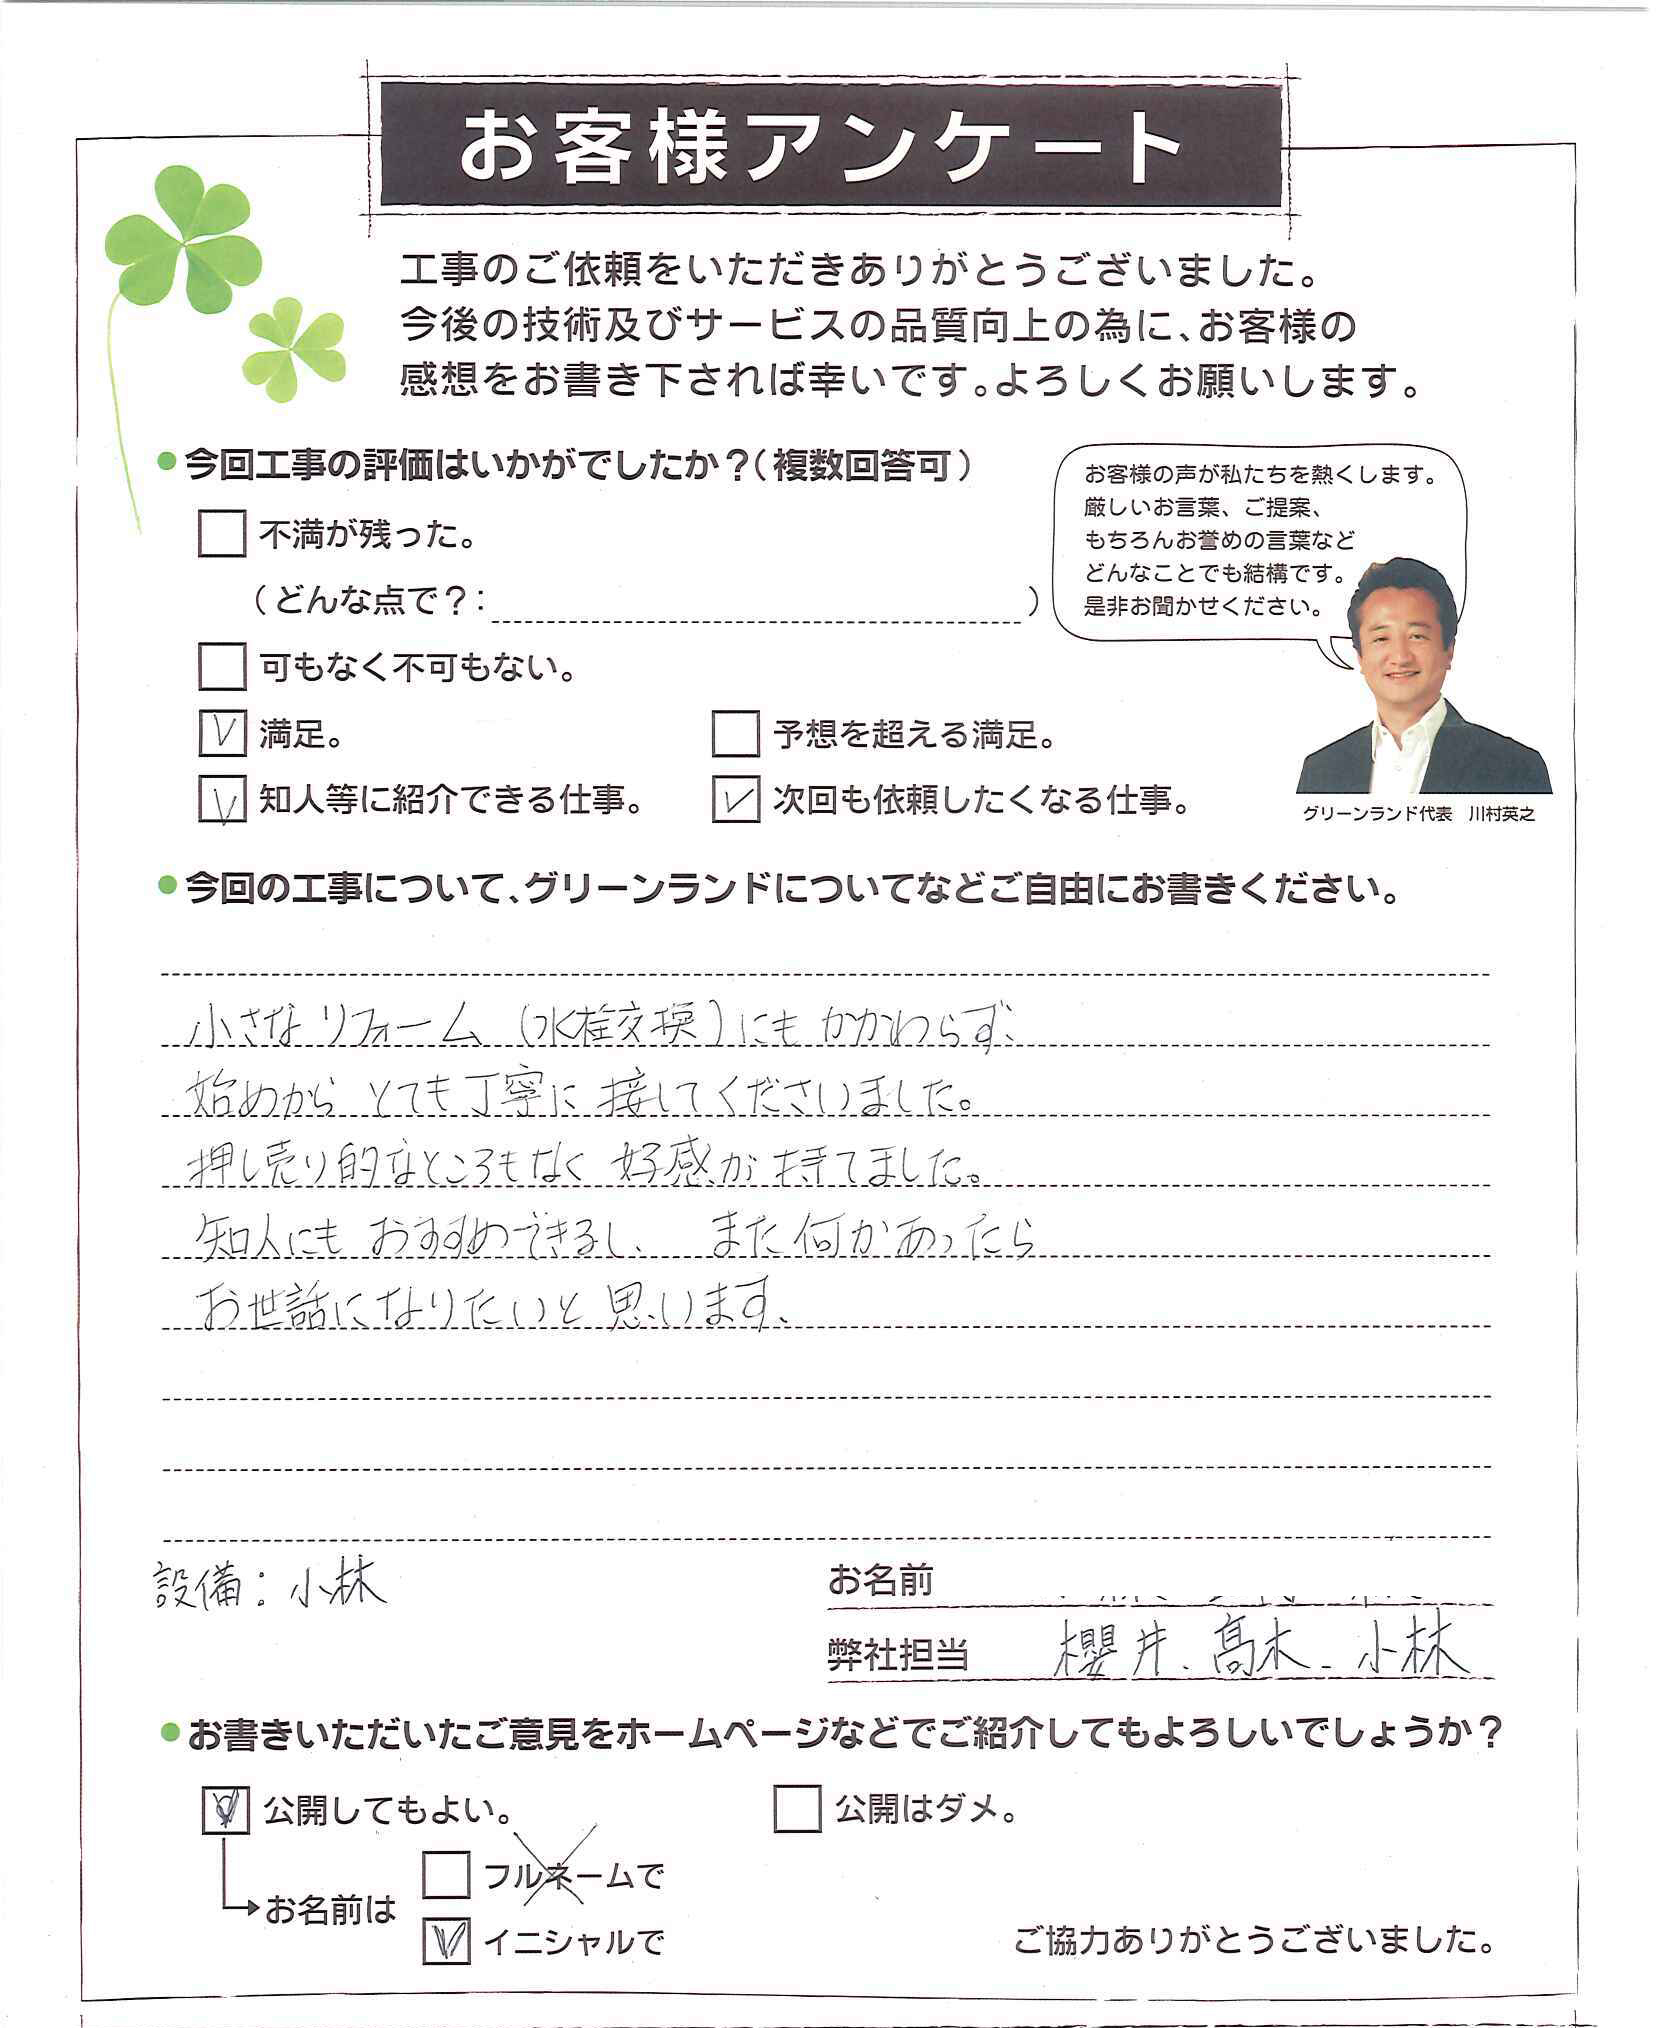 お客様アンケート
工事のご依頼をいただきありがとうございました。
今後の技術及びサービスの品質向上の為に、お客様の
感想をお書き下されば幸いです。よろしくお願いします。
●今回工事の評価はいかがでしたか？（複数回答可）
不満が残った。
（どんな点で？：　）
可もなく不可もない。
満足。
予想を超える満足。
知人等に紹介できる仕事。
次回も依頼したくなる仕事。
お客様の声が私たちを熱くします。
厳しいお言葉、ご提案、
もちろんお誉めの言葉など
どんなことでも結構です。
是非お聞かせください。
グリーンランド代表　川村英之
●今回の工事について、グリーンランドについてなどご自由にお書きください。
小さなリフォーム（水栓交換）にもかかわらず、
始めから とても丁寧に 接してくださいました。
押し売り的なところもなく 好感が 持てました。
知人にも おすすめできるし、 また何かあったら
お世話になりたいと 思います、
設備：小林
お名前
弊社担当 櫻井、髙木、小林
●お書きいただいたご意見をホームページなどでご紹介してもよろしいでしょうか？
公開してもよい。
公開はダメ。
お名前は
フルネームで
イニシャルで
ご協力ありがとうございました。